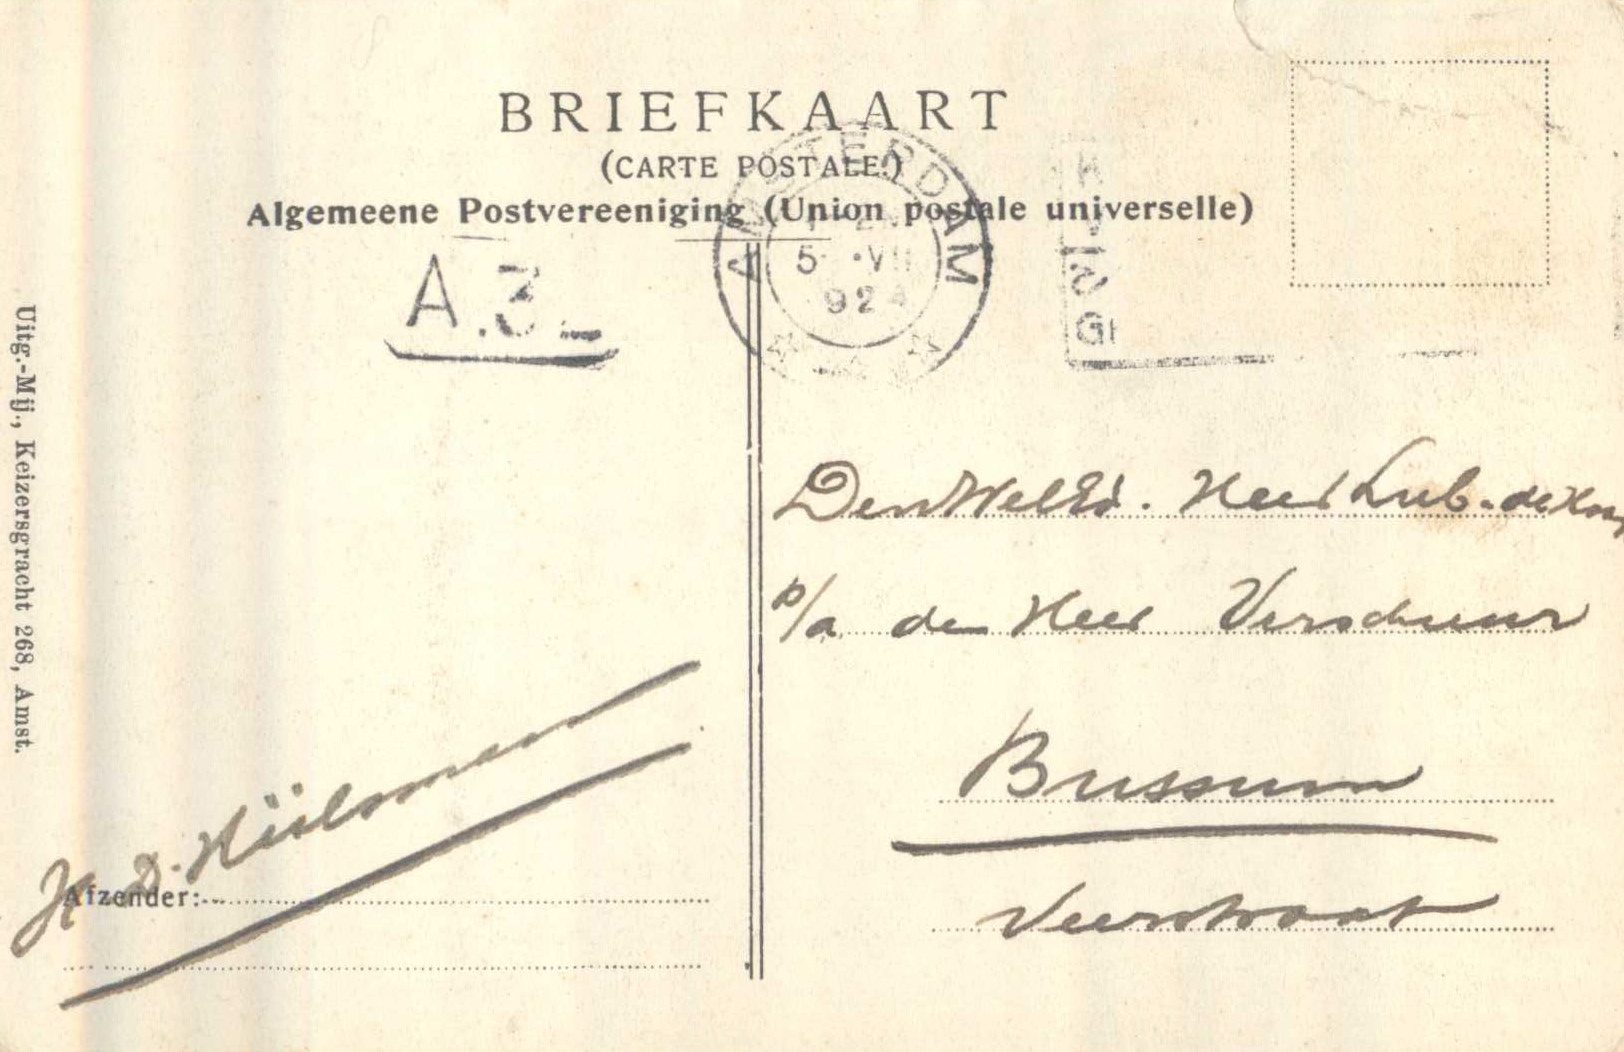 BRIEFKAART
(CARTE POSTALE.)
Algemeene Postvereeniging (Union postale universelle)
AMSTERDAM
5 VII
924
A.3
GE
Den WelEd. Heer Lub. de
p/a den Heer Verschuur
Bussum
Veerstraat
H. D. Hülsmann
Afzender:
Uitg.-Mij., Keizersgracht 268, Amst.